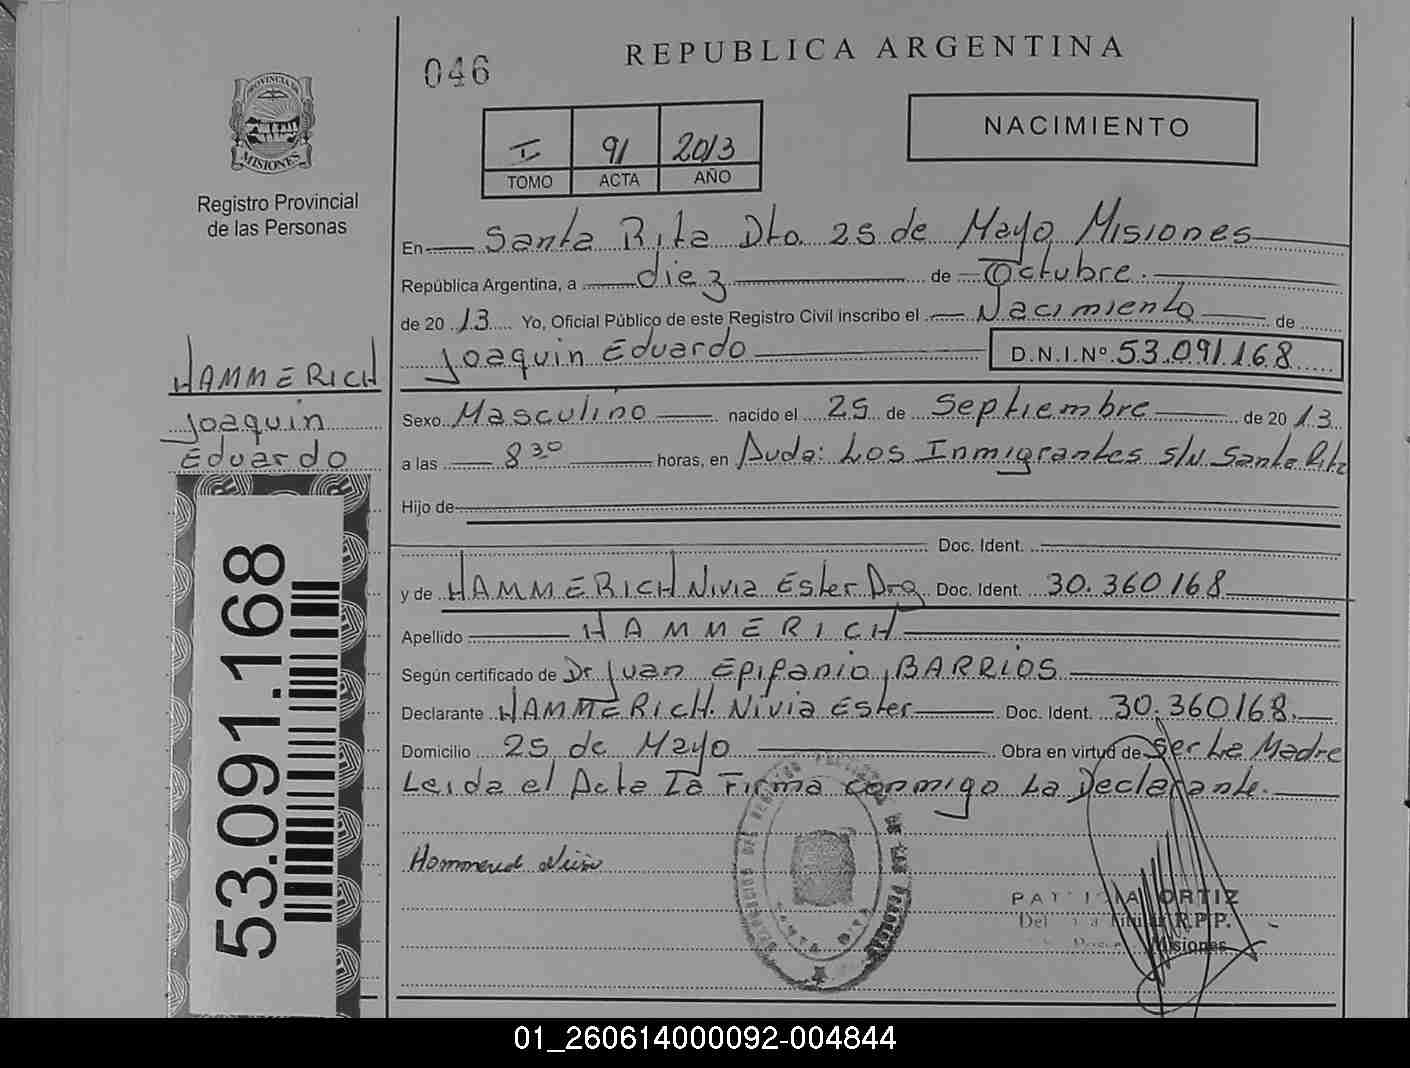 046
REPUBLICA ARGENTINA
NACIMIENTO
I 91 2013
TOMO ACTA AÑO
PROVINCIA DE
MISIONES
Registro Provincial
de las Personas
En Santa Rita Dto. 25 de Mayo, Misiones
República Argentina, a diez de Octubre.
de 20 13 Yo, Oficial Público de este Registro Civil inscribo el Nacimiento de
Joaquin Eduardo D.N.I.Nº 53.091.168
HAMMERICH
Joaquin
Eduardo
Sexo Masculino nacido el 25 de Septiembre de 20 13
a las 8 30 horas, en Avda: Los Inmigrantes S/N Santa Rita
Hijo de
Doc. Ident.
y de HAMMERICH Nivia Ester Doc. Ident. 30.360168
Apellido HAMMERICH
Según certificado de Dr Juan Epifanio, BARRIOS
Declarante HAMMERICH. Nivia Ester Doc. Ident. 30.360168.
Domicilio 25 de Mayo Obra en virtud de Ser La Madre
Leida el Acta La Firma conmigo La Declarante.
53.091.168
Hammerich Nivia
SANTA RITA
ORTIZ
Titular R.P.P.
Misiones
01_260614000092-004844